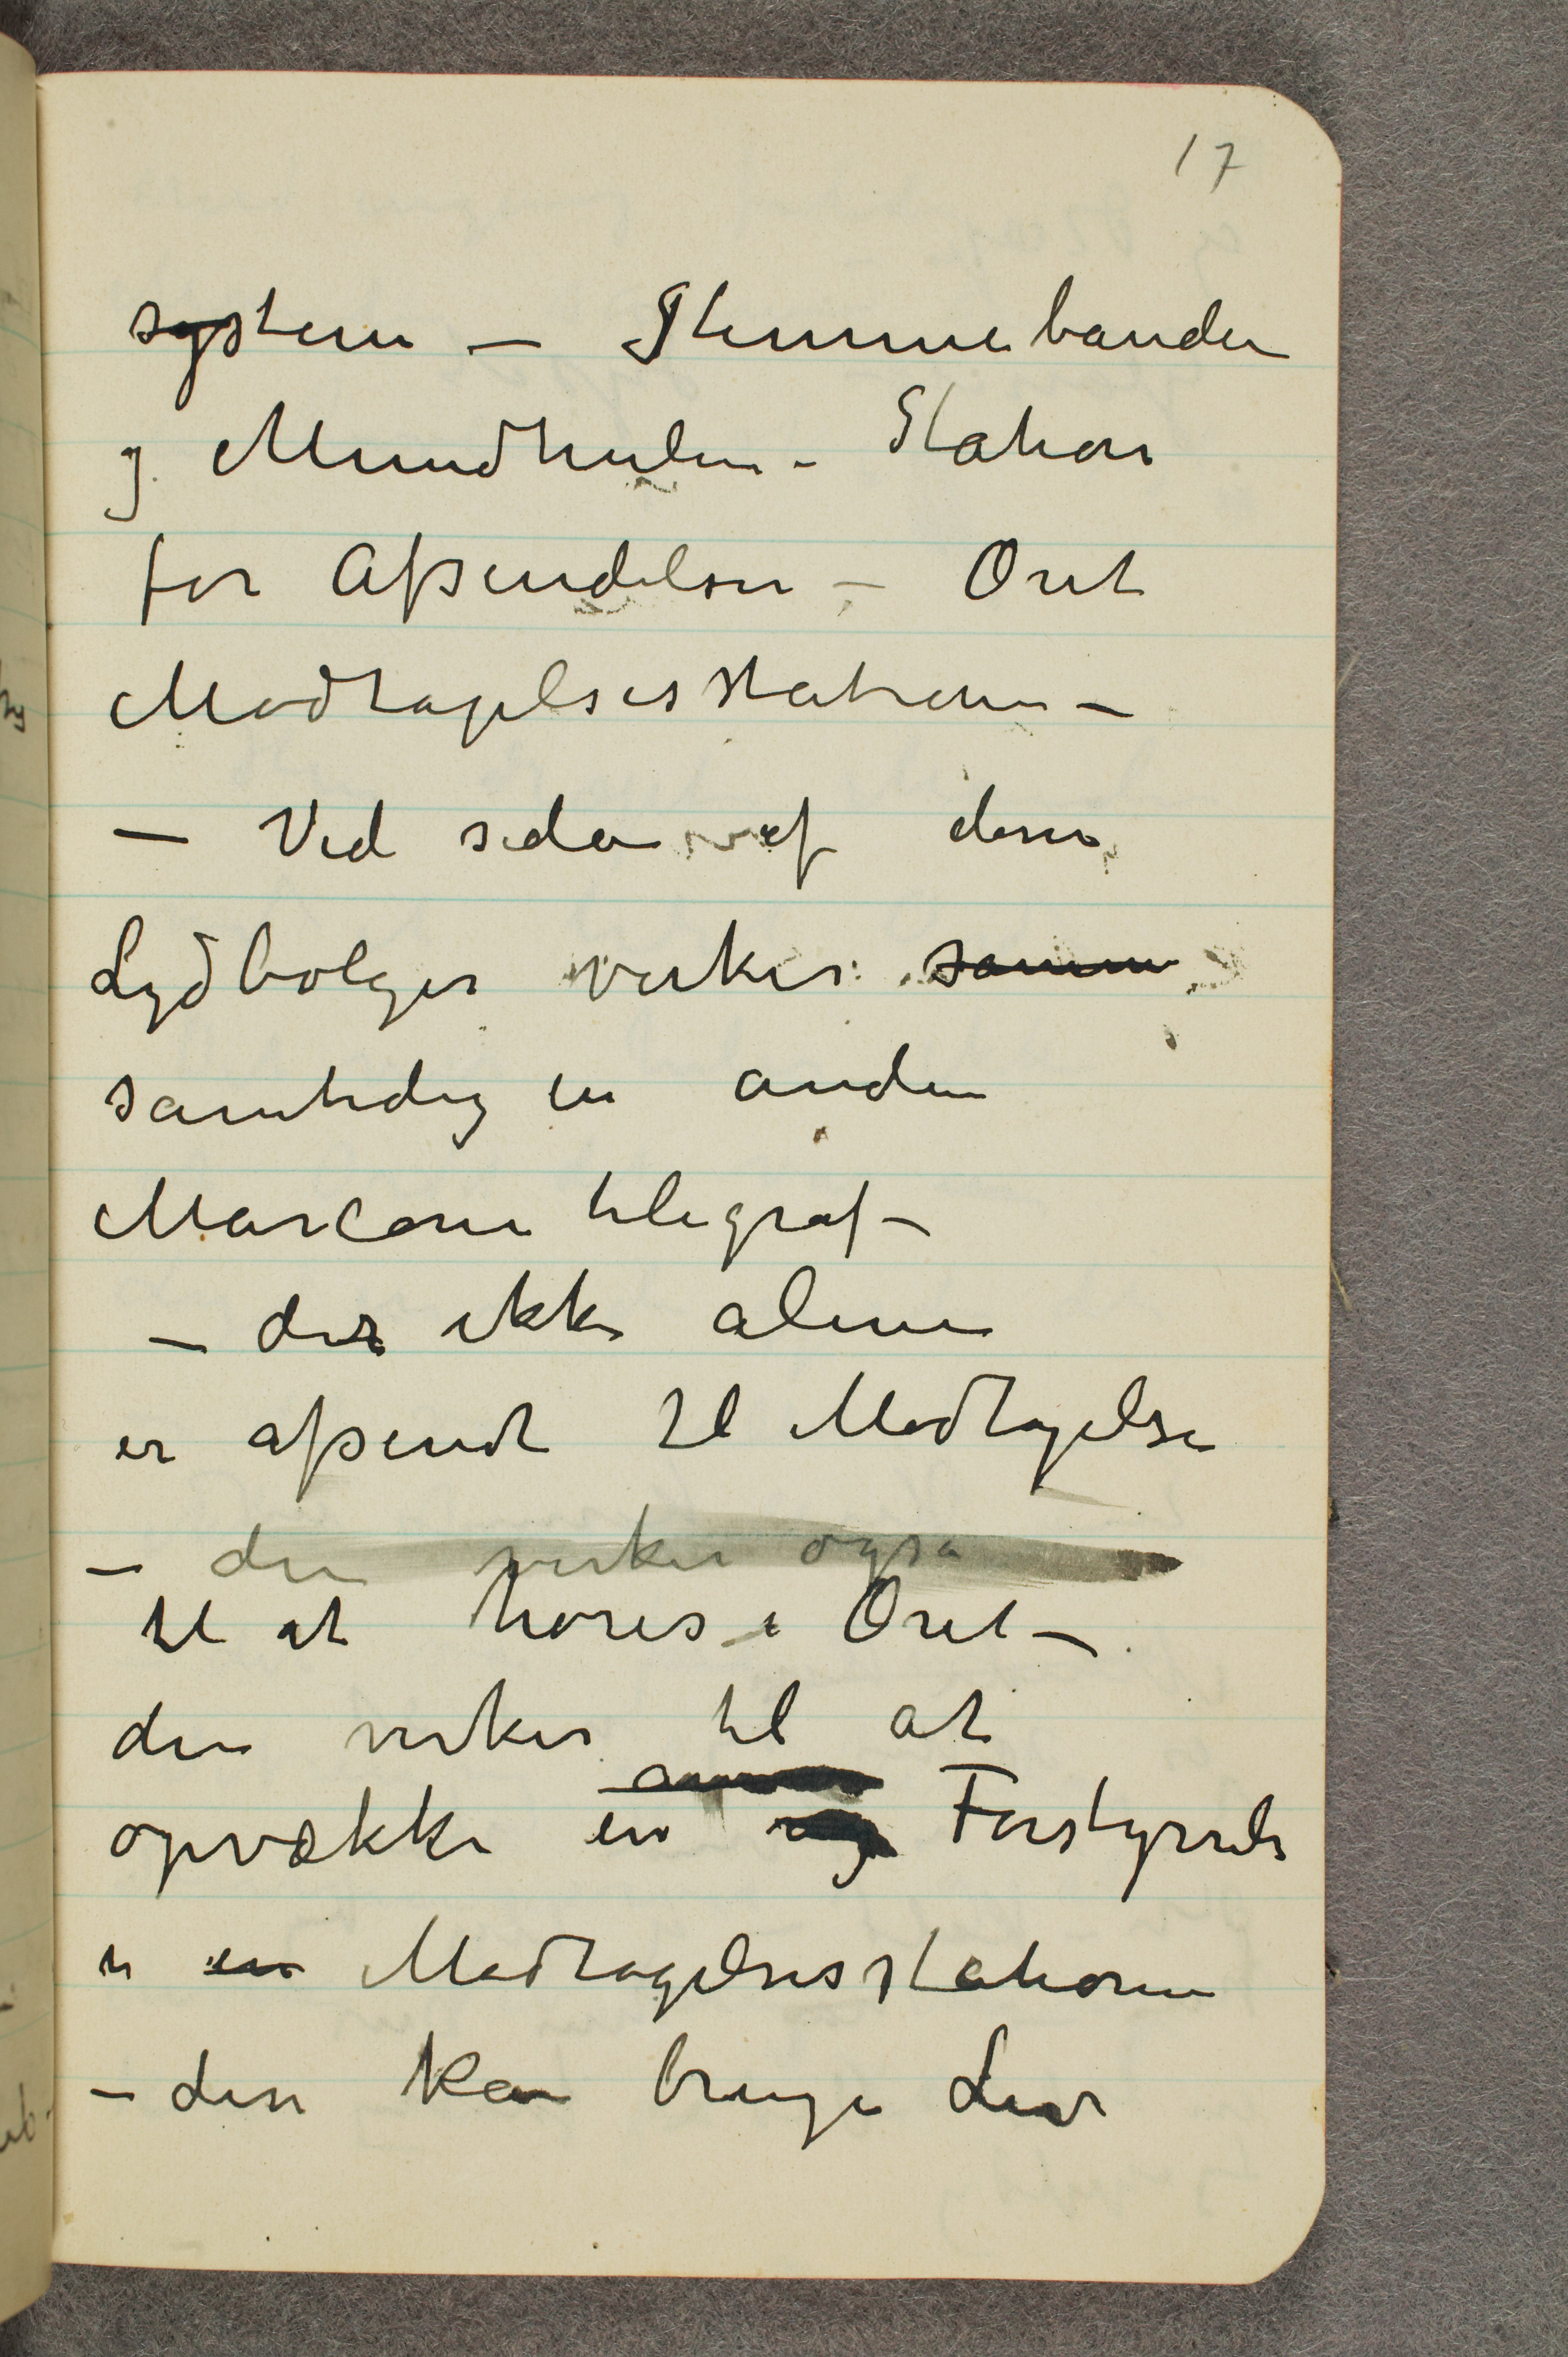 17
system – Stemmebånden
og Mundhulen – Station
for Afsendelsen – Øret
Modtagelsesstationen –
– Ved siden af disse
Lydbølger virker samme
samtidig en anden
Marconi telegraf –
– der ikke alene
er afsendt til Modtagelse
– den virker også
til at høres i Øret –
den virker til at
opvække en Forstyrrelse
i en Modtagelsesstationen
– den kan bringe Liv